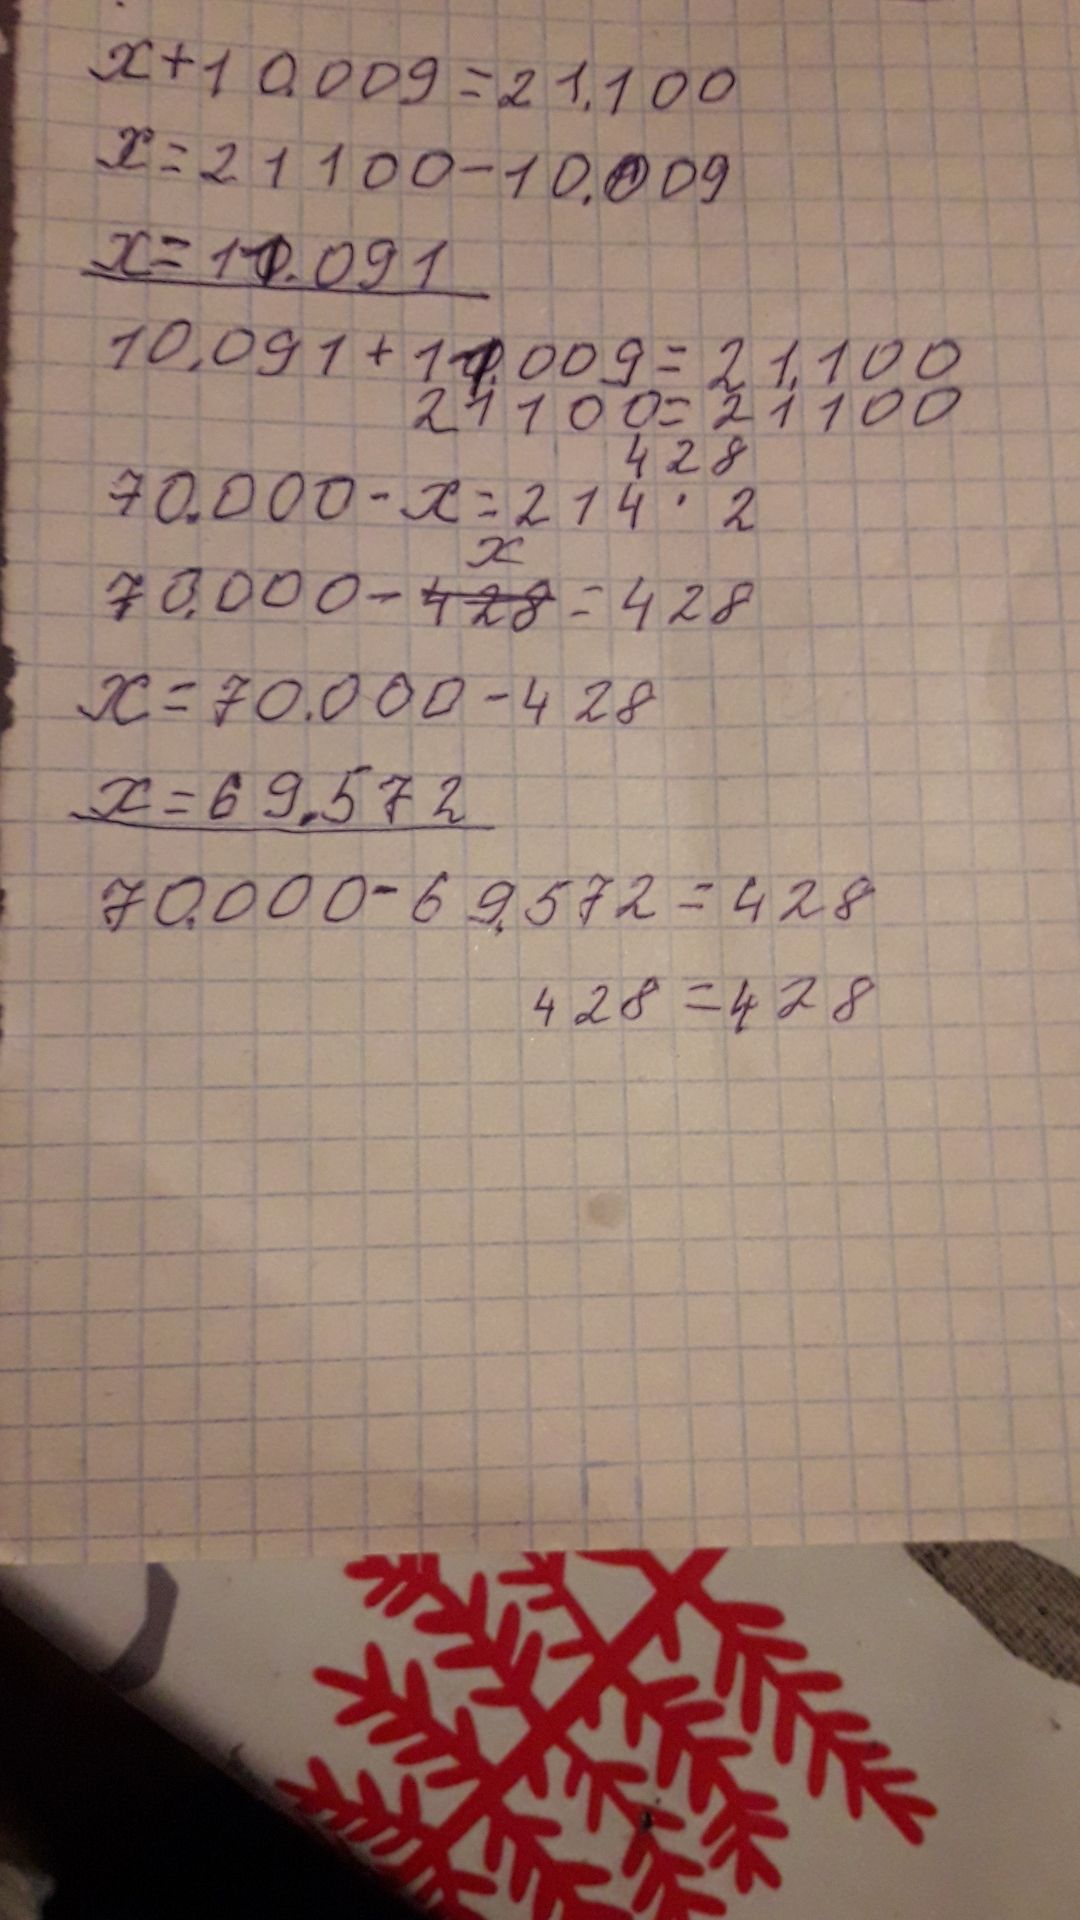 x+10.009=21.100
x=21100-10.009
x=11.091
10.091+11.009=21.100
21100=21100
428
70.000-x=214·2
x
70.000-428=428
x=70.000-428
x=69.572
70.000-69.572=428
428=428